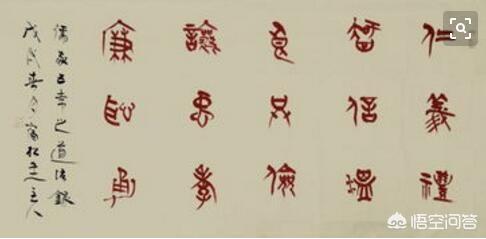 仁義禮
智信溫
良恭儉
讓忠孝
廉恥勇
儒家五常之道
戊戌春月 主人
悟空问答